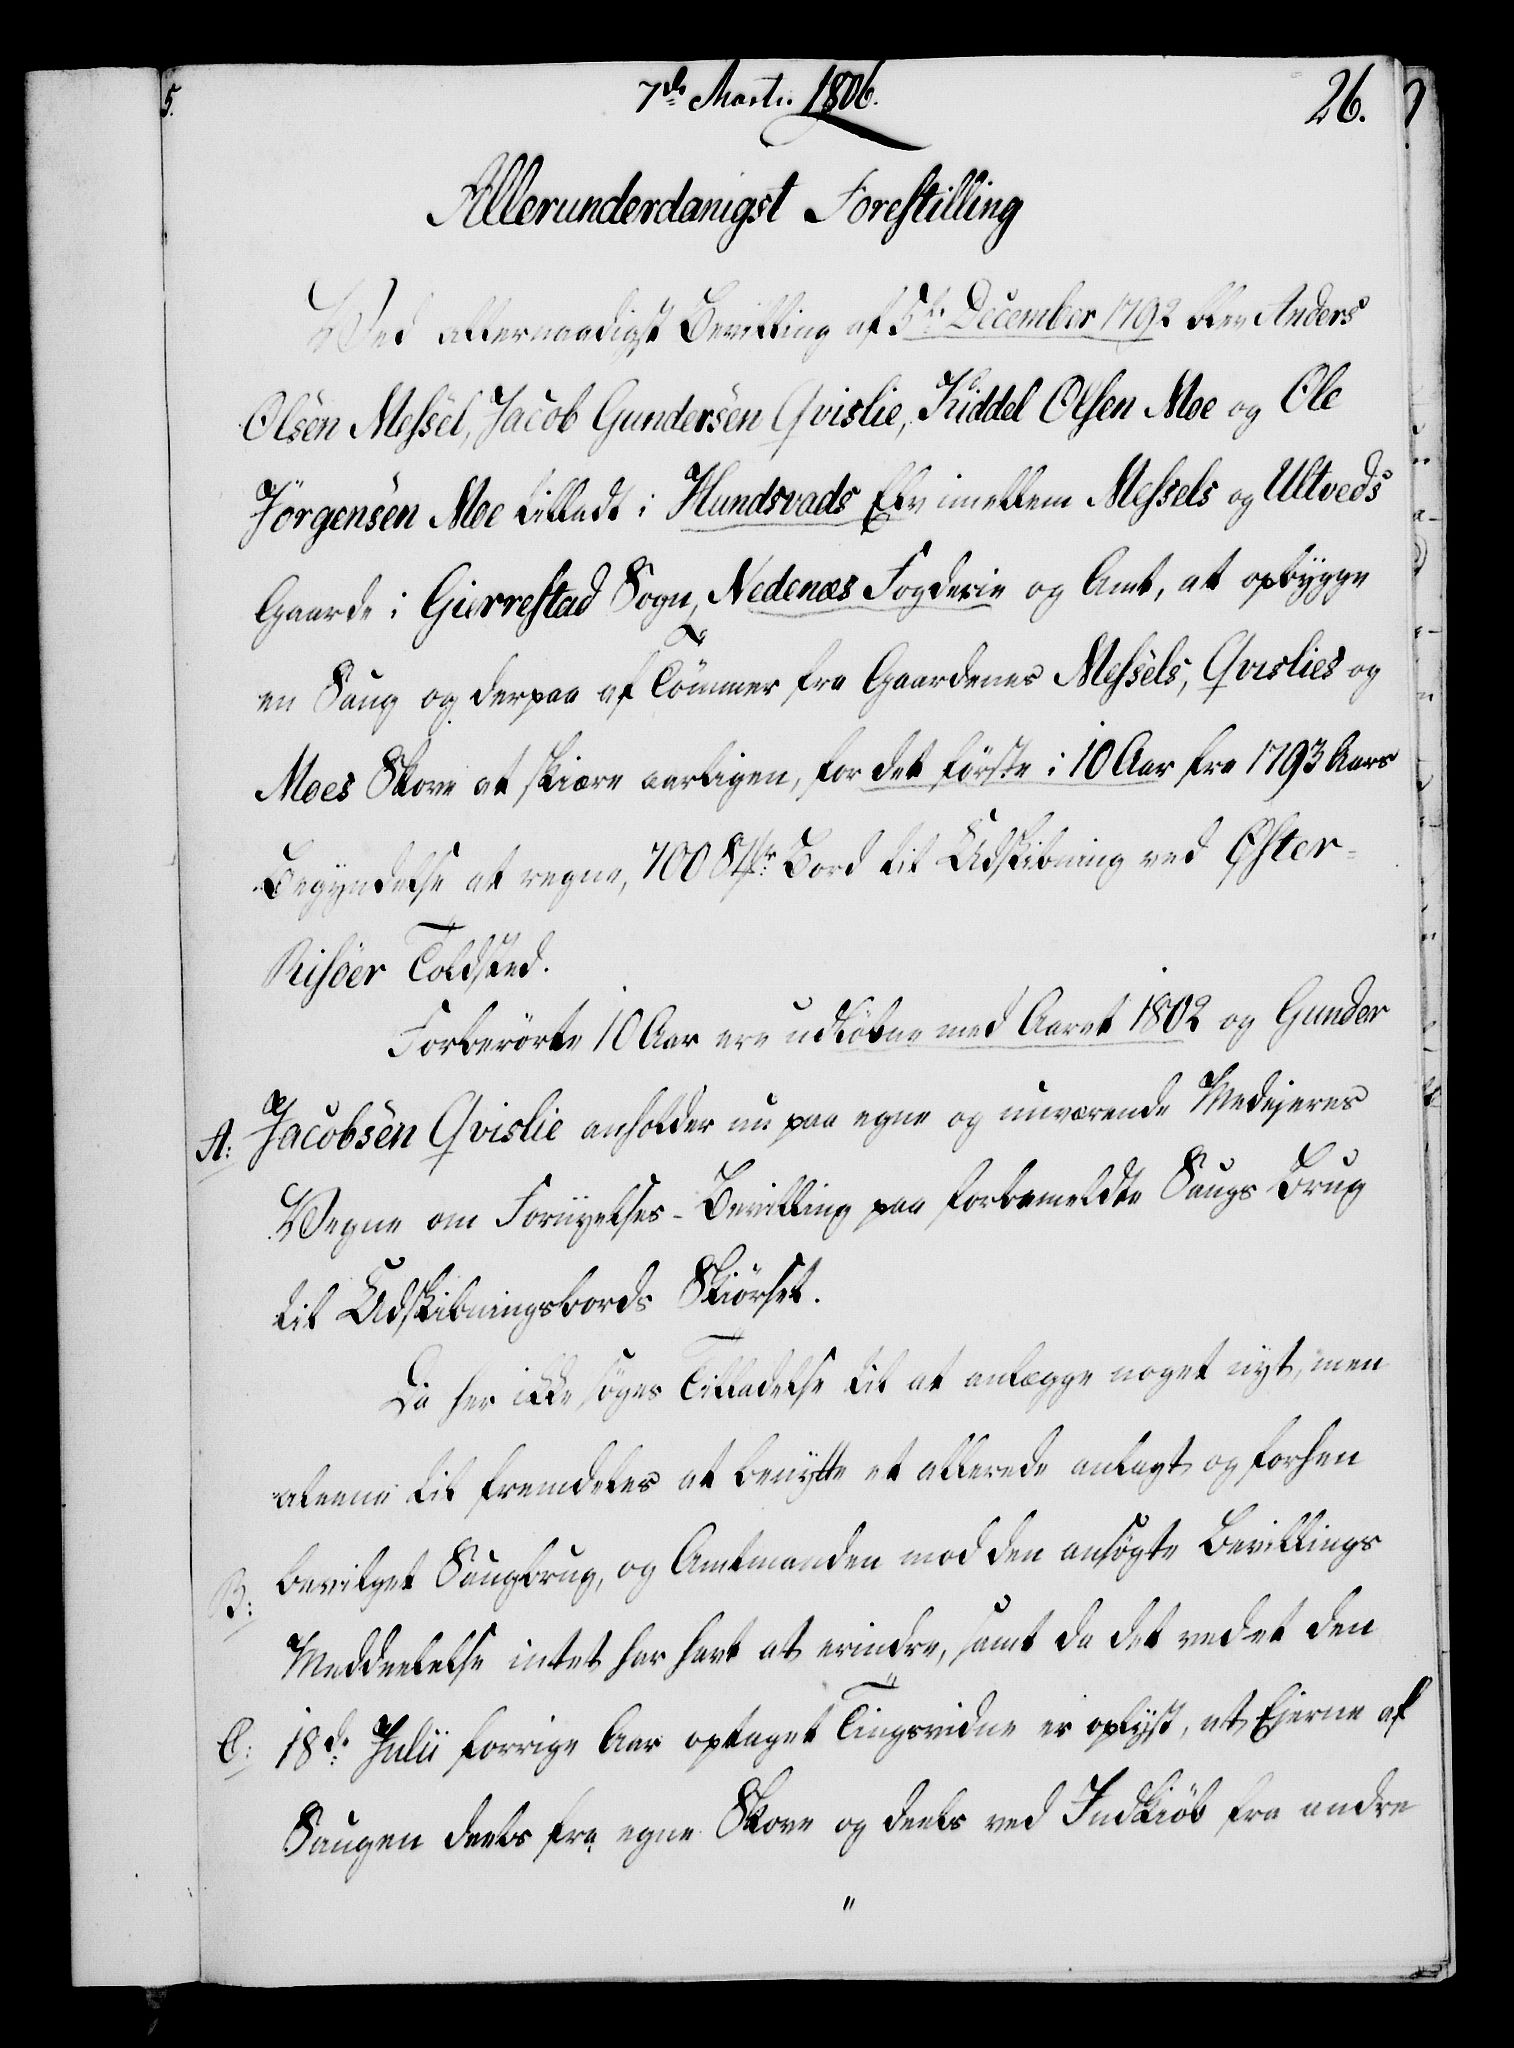 5.
7de Marti. 1806.
26.
Allerunderdanigst Forestilling
Ved allernaadigst Bevilling af 5te December 1792 blev Anders
Olsen Messel, Jacob Gundersen Qvislie, Kiddel Olsen Moe og Ole
Jörgensen Moe tilladt i Hundsvads Elv imellem Messels og Ultveds
Gaarde i Gierrestad Sogn, Nedenæs Fogderie og Amt, at opbygge
en Saug og derpaa af Tömmer fra Gaardenes Messels, Qvislies og
Moes Skove at skiære aarligen, for det förste i 10 Aar fra 1793 Aars
Begyndelse at regne, 700 Stkr Bord til Udskibning ved Öster-
Risöer Toldsted.
Forberörte 10 Aar ere udlöbne med Aaret 1802 og Gunder
A: Jacobsen Qvislie anholder nu paa egne og nuværende Medejeres
Vegne om Fornyelses-Bevilling paa forbemeldte Saugs Brug
til Udskibningsbords Skiörsel.
Da her ikke söges Tilladelse til at anlægge noget nyt, men
aleene til fremdeles at benytte et allerede anlagt og forhen
B: bevilget Saugbrug, og Amtmanden mod den ansögte Bevillings
Meddeelelse intet har havt at erindre, samt da det ved et den
C: 18de Julii forrige Aar optaget Tingsvidne er oplyst, at Ejerne af
Saugen deels fra egne Skove og deels ved Indkiöb fra andre
"